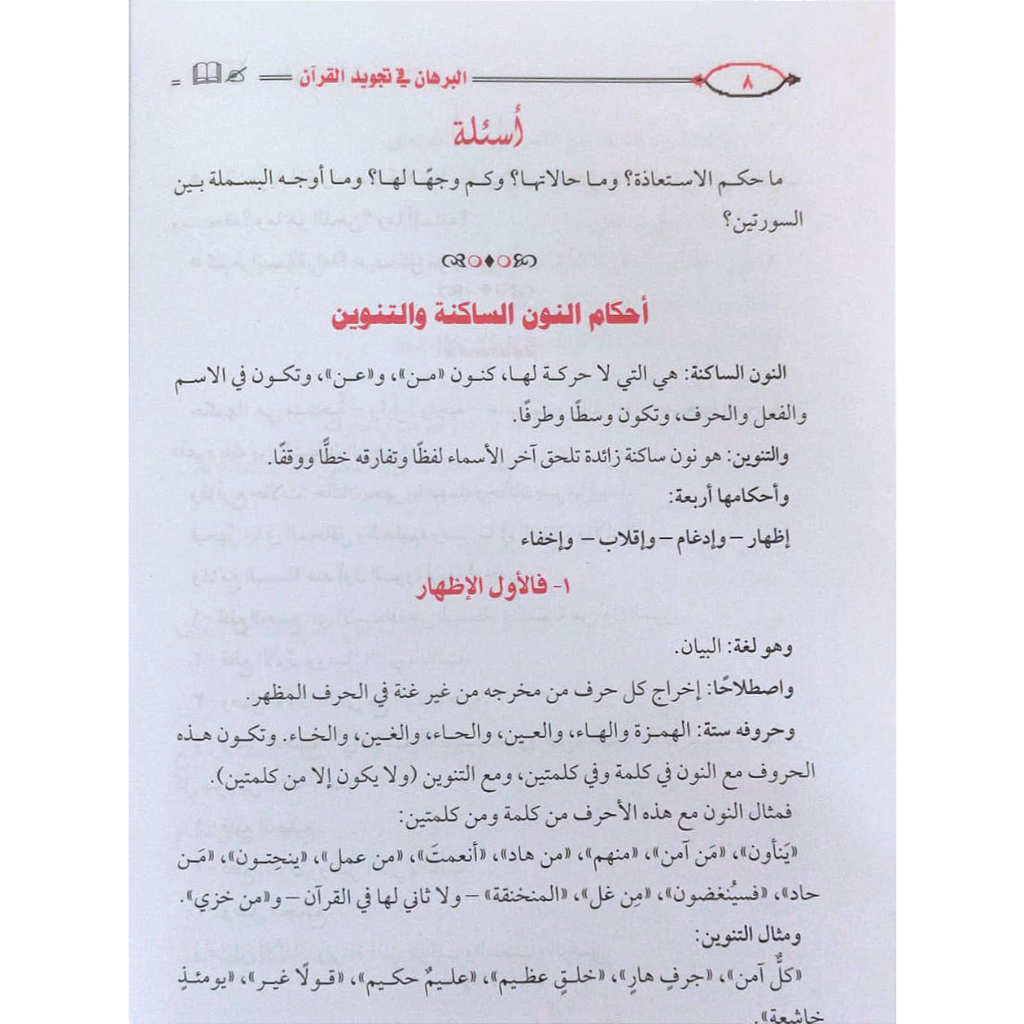 ٨
البرهان في تجويد القرآن
أسئلة
ما حكم الاستعاذة؟ وما حالاتها؟ وكم وجهًا لها؟ وما أوجه البسملة بين
السورتين؟
أحكام النون الساكنة والتنوين
النون الساكنة: هي التي لا حركة لها، كنون «من»، و«عن»، وتكون في الاسم
والفعل والحرف، وتكون وسطًا وطرفًا.
والتنوين: هو نون ساكنة زائدة تلحق آخر الأسماء لفظًا وتفارقه خطًّا ووقفًا.
وأحكامها أربعة:
إظهار – وإدغام – وإقلاب – وإخفاء
١- فالأول الإظهار
وهو لغة: البيان.
واصطلاحًا: إخراج كل حرف من مخرجه من غير غنة في الحرف المظهر.
وحروفه ستة: الهمزة والهاء، والعين، والحاء، والغين، والخاء. وتكون هذه
الحروف مع النون في كلمة وفي كلمتين، ومع التنوين (ولا يكون إلا من كلمتين).
فمثال النون مع هذه الأحرف من كلمة ومن كلمتين:
«يَنأون»، «مَن آمن»، «منهم»، «من هاد»، «أنعمتَ»، «من عمل»، «ينحِتون»، «مَن
حاد»، «فسيُنغضون»، «مِن غل»، «المنخنقة» – ولا ثاني لها في القرآن – و«من خزي».
ومثال التنوين:
«كلٌّ آمن»، «جرفٍ هارٍ»، «خلقٍ عظيم»، «عليمٌ حكيم»، «قولًا غير»، «يومئذٍ
خاشعة».